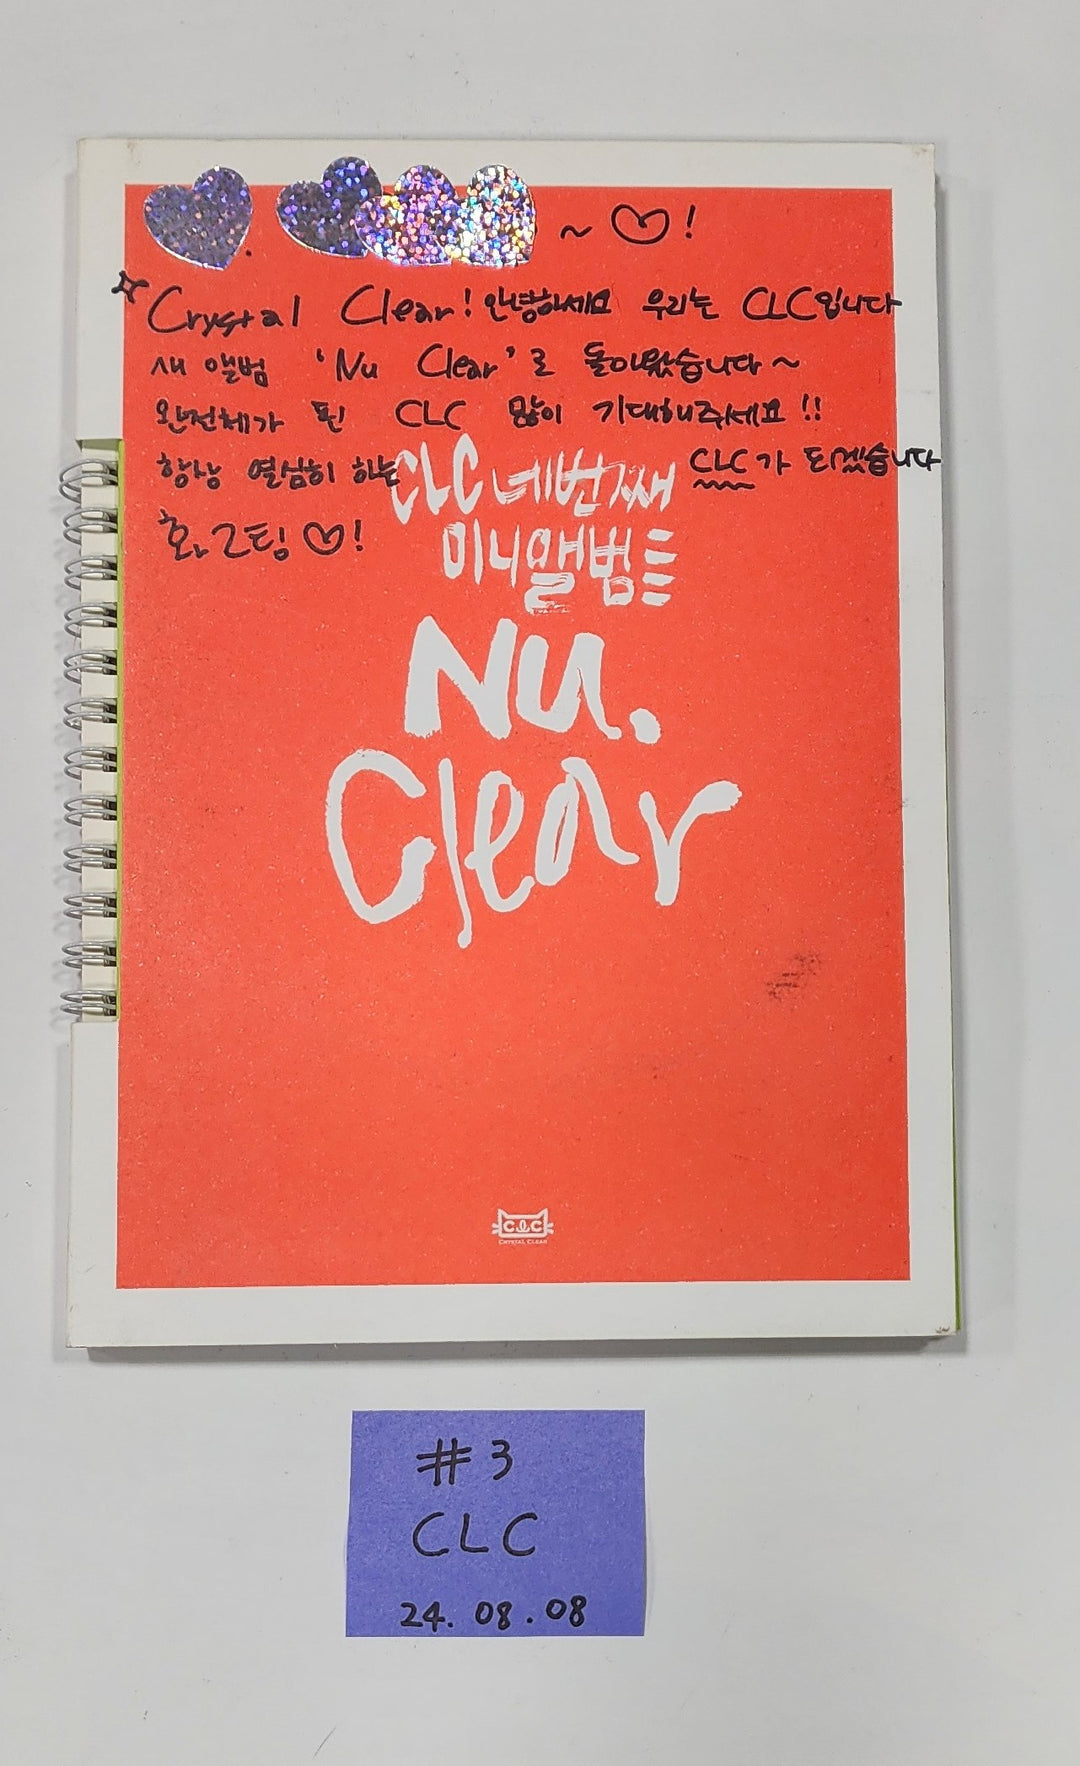 ~ ♡!
Crystal Clear! 안녕하세요 우리는 CLC입니다
새 앨범 'Nu Clear'로 돌아왔습니다~
완전체가 된 CLC 많이 기대해주세요!!
항상 열심히 하는 CLC가 되겠습니다
화그팅♡!
CLC 네번째
미니앨범
Nu.
Clear
CLC
CRYSTAL CLEAR
#3
CLC
24.08.08